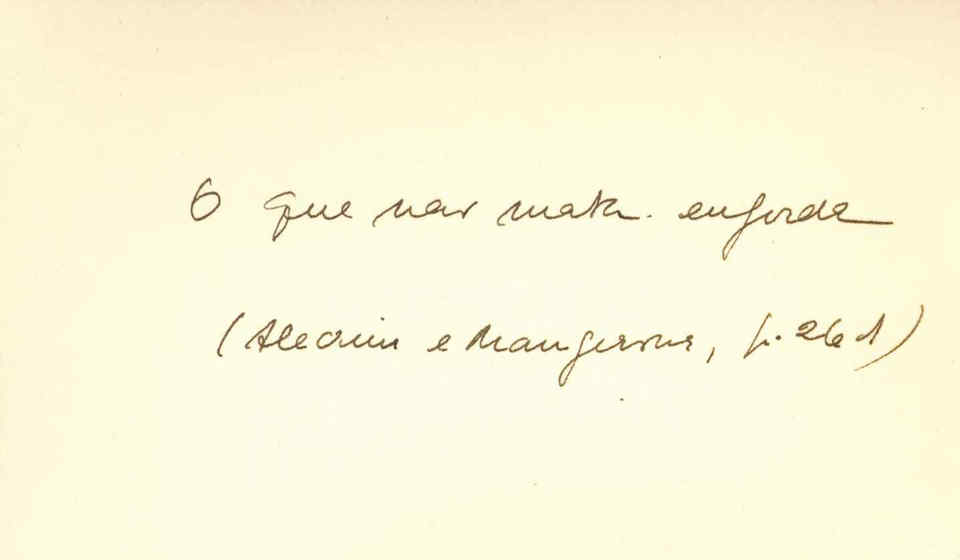 O que não mata engorda
(Alecrim e Mangerona, p. 261)